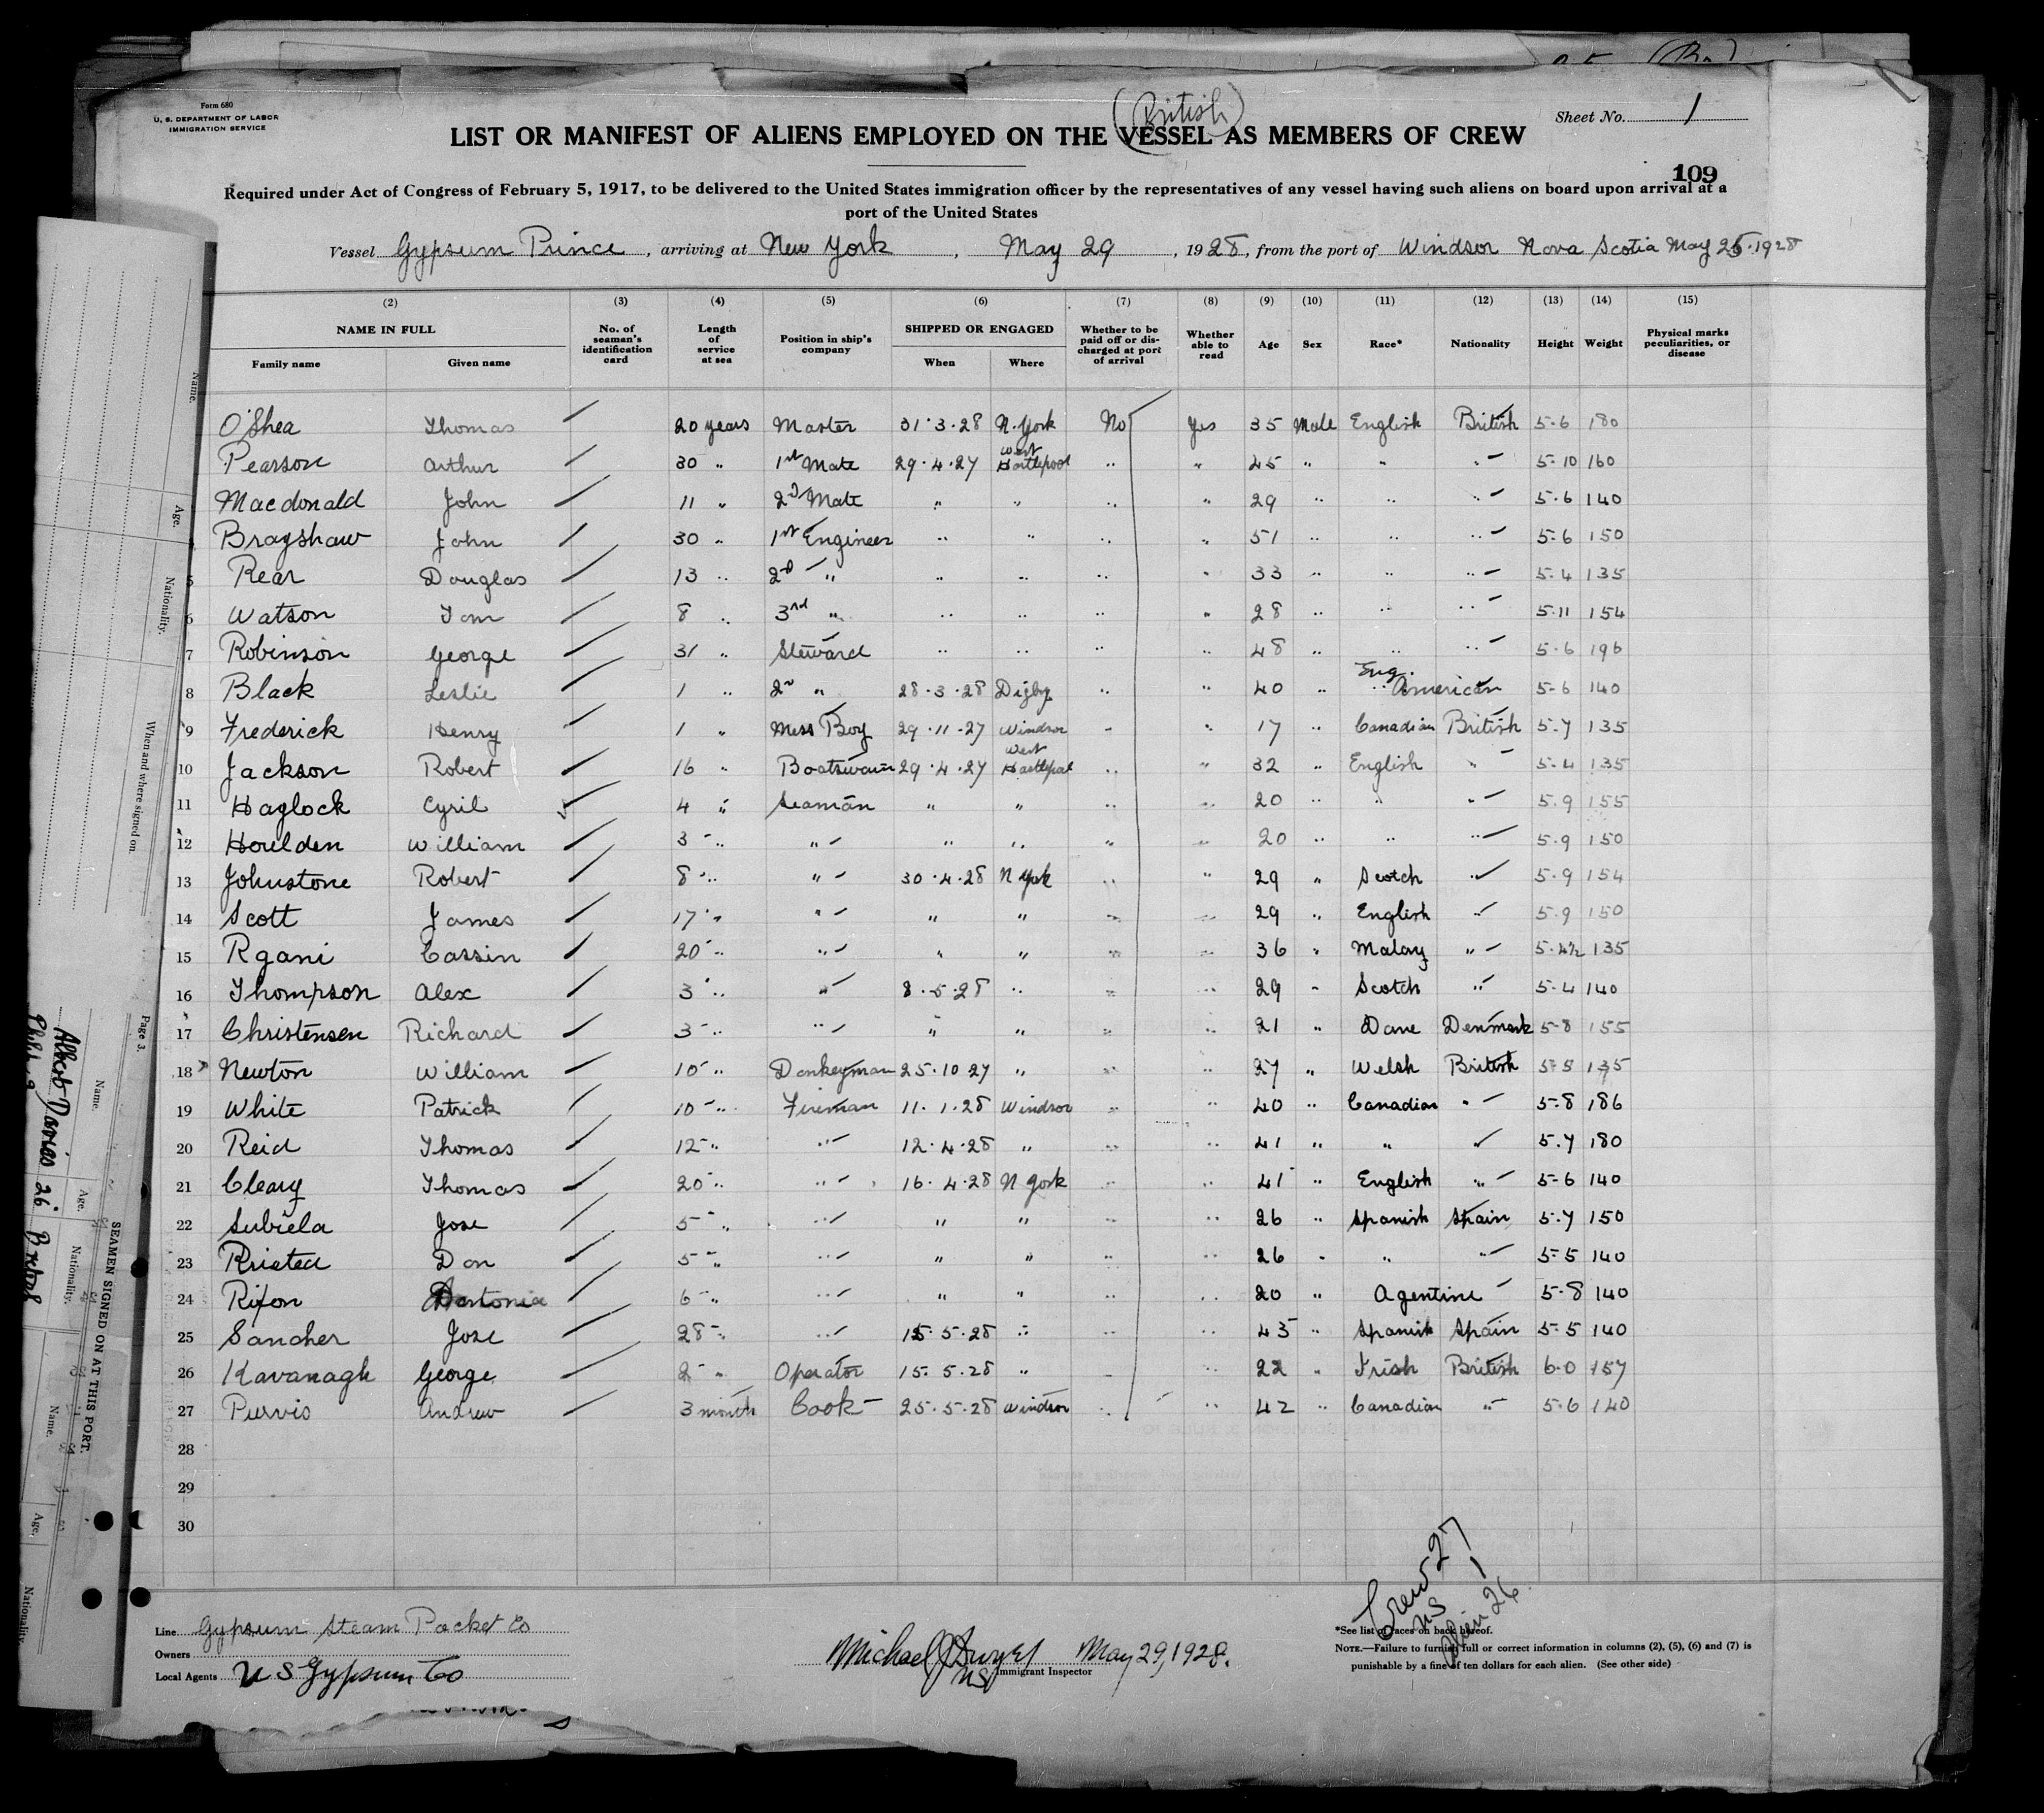 Form 680
U. S. DEPARTMENT OF LABOR
IMMIGRATION SERVICE
(British)
Sheet No. 1
LIST OR MANIFEST OF ALIENS EMPLOYED ON THE VESSEL AS MEMBERS OF CREW
109
Required under Act of Congress of February 5, 1917, to be delivered to the United States immigration officer by the representatives of any vessel having such aliens on board upon arrival at a
port of the United States
Vessel Gypsum Prince, arriving at New York, May 29, 1928, from the port of Windsor Nova Scotia May 25.1928
(2) (3) (4) (5) (6) (7) (8) (9) (10) (11) (12) (13) (14) (15)
NAME IN FULL Family name Given name No. of seaman's identification card Length of service at sea Position in ship's company SHIPPED OR ENGAGED When Where Whether to be paid off or discharged at port of arrival Whether able to read Age Sex Race* Nationality Height Weight Physical marks peculiarities, or disease
O'Shea Thomas 20 years Master 31.3.28 N. York No Yes 35 Male English British 5.6 180
Pearson Arthur 30 " 1st Mate 29.4.27 West Hartlepool " " 45 " " " 5-10 160
Macdonald John 11 " 2D Mate " " " " 29 " " " 5.6 140
Bragshaw John 30 " 1st Engineer " " " " 51 " " " 5-6 150
5 Rear Douglas 13 " 2D " " " " " 33 " " " 5.4 135
6 Watson Tom 8 " 3rd " " " " " 28 " " " 5.11 154
7 Robinson George 31 " Steward " " " " 48 " " " 5.6 196
8 Black Leslie 1 " 2" " 28.3.28 Digby " " 40 " Eng. American 5-6 140
9 Frederick Henry 1 " Mess Boy 29.11.27 Windsor " " 17 " Canadian British 5.7 135
10 Jackson Robert 16 " Boatswain 29.4.27 West Hartlepool " " 32 " English " 5-4 135
11 Haglock Cyril 4 " Seaman " " " " 20 " " " 5.9 155
12 Houlden William 3 " " " " " " 20 " " " 5.9 150
13 Johnstone Robert 8 " " 30.4.28 N York " " 29 " Scotch " 5.9 154
14 Scott James 17 " " " " " " 29 " English " 5.9 150
15 Rgani Cassin 20 " " " " " " 36 " Malay " 5.4½ 135
16 Thompson Alex 3 " " 8.5.28 " " " 29 " Scotch " 5.4 140
17 Christensen Richard 3 " " " " " " 21 " Dane Denmark 5-8 155
18 Newton William 10 " Donkeyman 25.10.27 " " " 27 " Welsh British 5-5 135
19 White Patrick 10 " Fireman 11.1.28 Windsor " " 40 " Canadian " 5-8 186
20 Reid Thomas 12 " " 12.4.28 " " " 41 " " " 5.7 180
21 Cleary Thomas 20 " " 16.4.28 N York " " 41 " English " 5-6 140
22 Subiela Jose 5 " " " " " " 26 " Spanish Spain 5.7 150
23 Don 5 " " " " " " 26 " " " 5-5 140
24 Rifon 6 " " " " " " 20 " Agentine 5-8 140
25 Sancher Jose 28 " " 15.5.28 " " " 43 " Spanish Spain 5-5 140
26 Kavanagh George 2 " Operator 15.5.28 " " " 22 " Irish British 6.0 157
27 Purvis Andrew 3 month Cook 25.5.28 Windsor " " 42 " Canadian " 5.6 140
28
29
30
Crew 27
US 1
Alien 26
Line Gypsum Steam Packet Co
Owners
Local Agents U S Gypsum Co
Michael J Dwyer May 29, 1928.
Immigrant Inspector
*See list of races on back hereof.
NOTE.—Failure to furnish full or correct information in columns (2), (5), (6) and (7) is
punishable by a fine of ten dollars for each alien. (See other side)
Name.
Age.
Nationality.
When and where signed on.
Page 3.
SEAMEN SIGNED ON AT THIS PORT.
Name. Age. Nationality.
Albert Davies 26
Name. Age. Nationality.